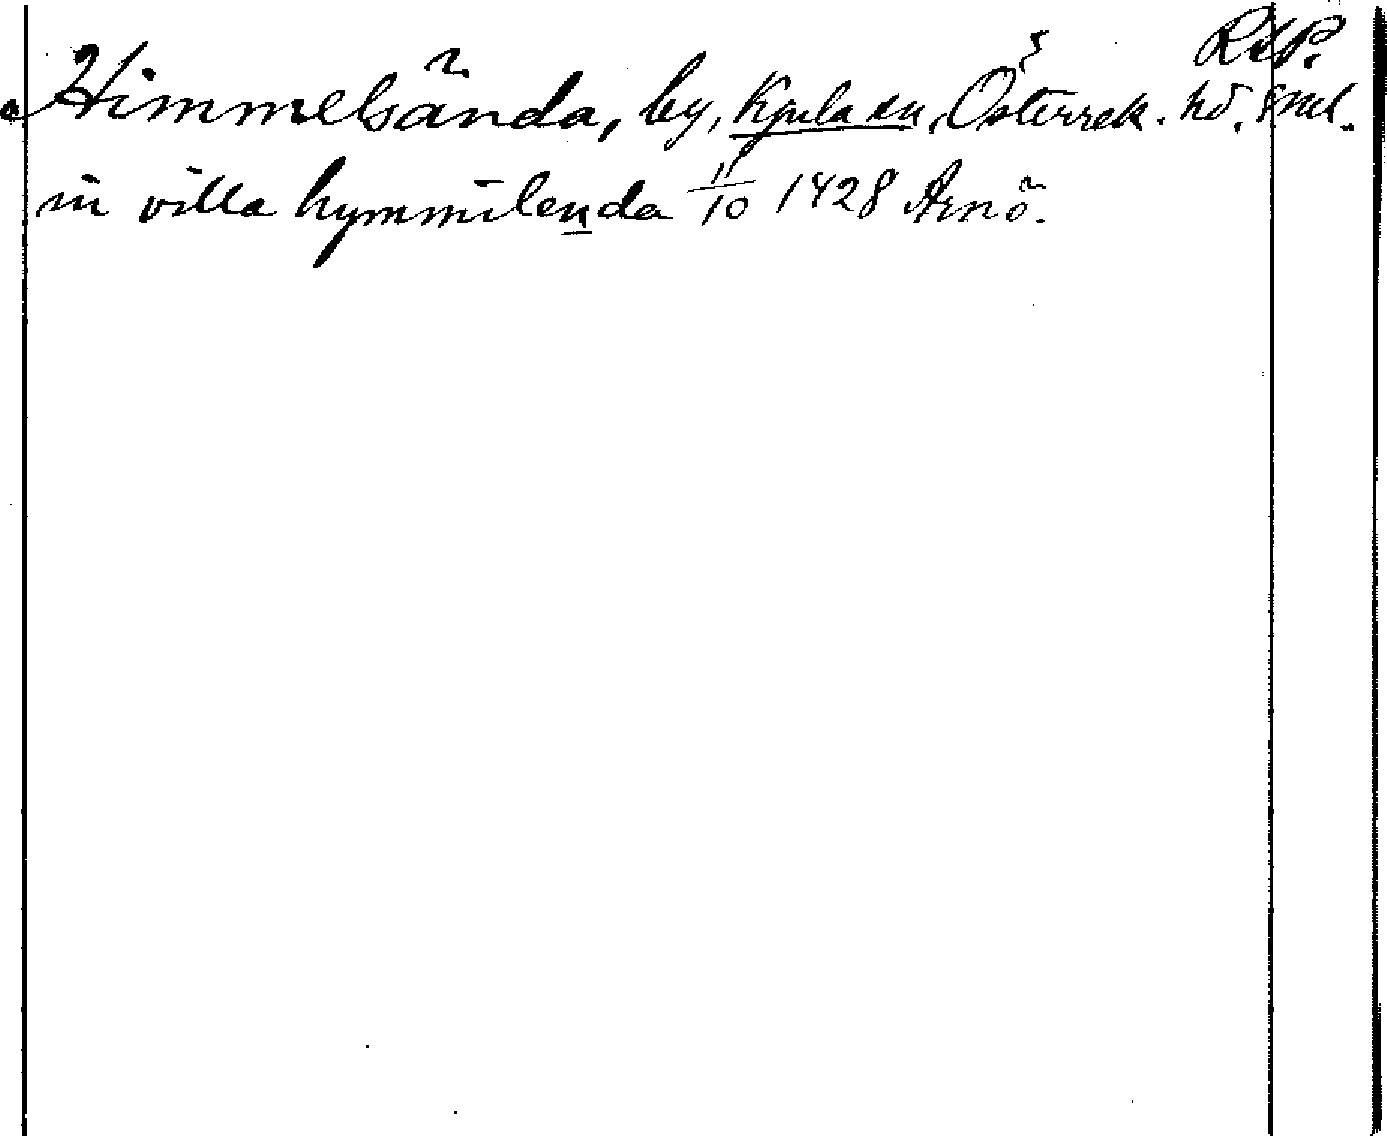 RAP.
Himmelsända, by, Kjula sn, Österrek. hd, Sml.
in villa hymmilenda 11/10 1428 Arnö.